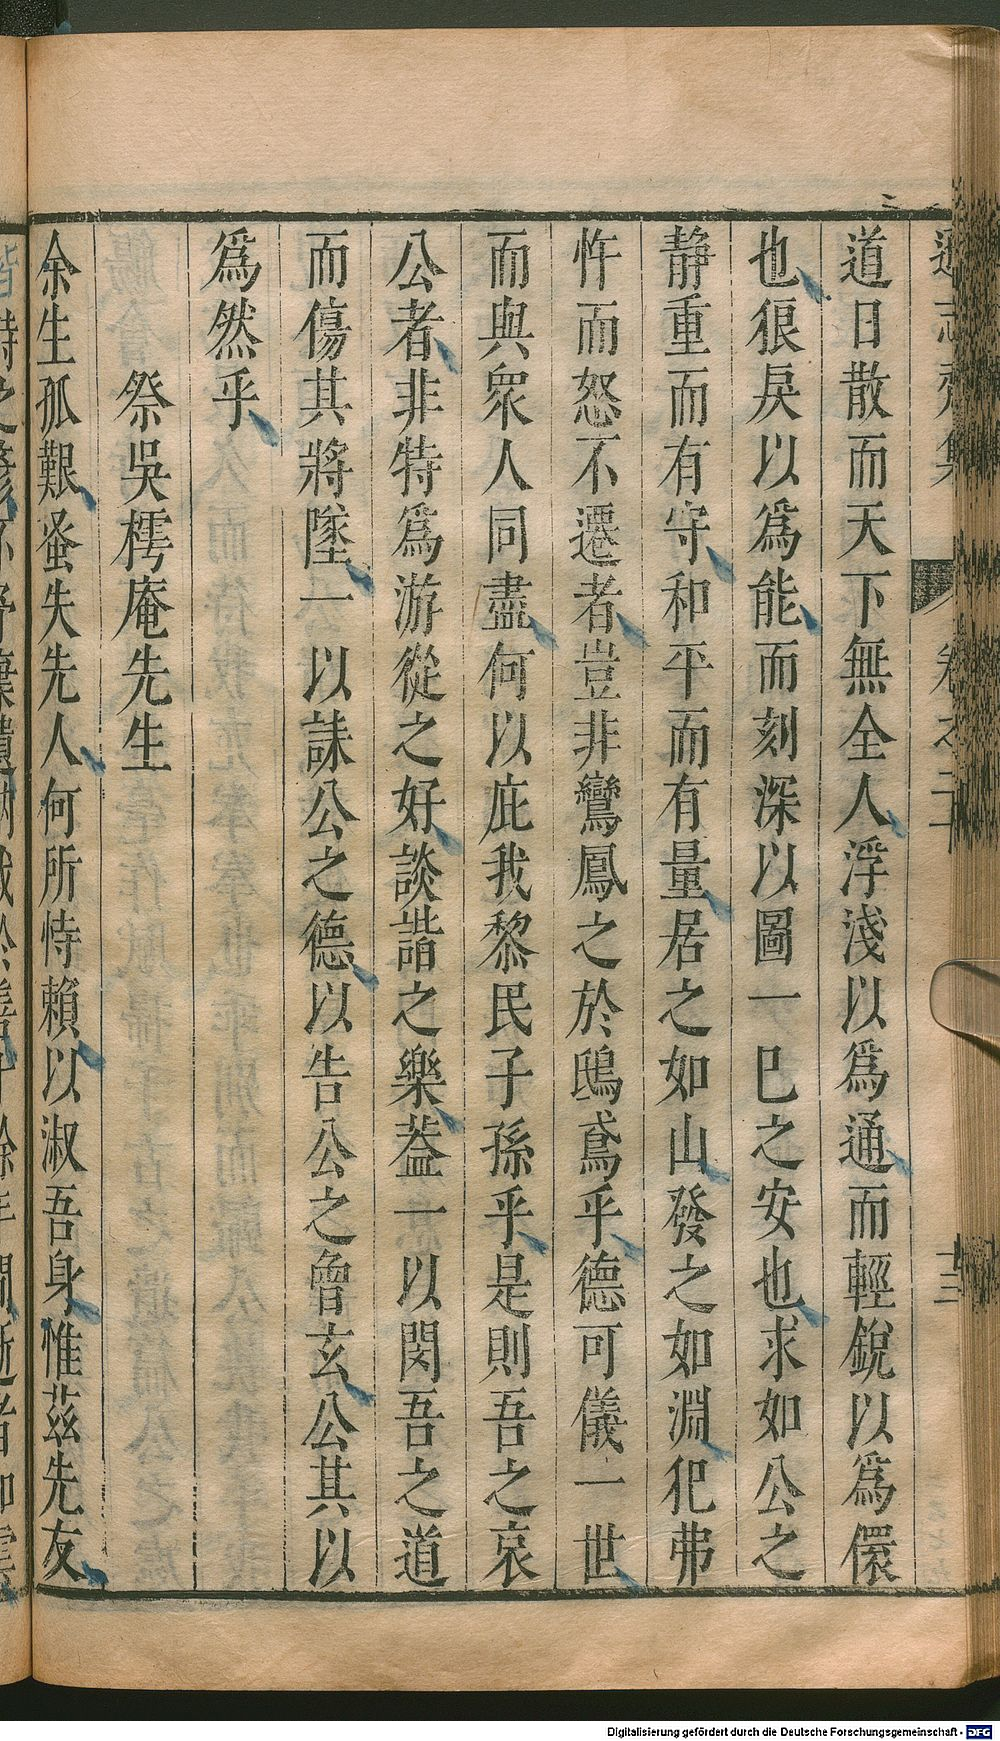 遜志齋集 卷之二十 十三
道日散而天下無全人浮淺以爲通而輕銳以爲儇
也狠戾以爲能而刻深以圖一巳之安也求如公之
靜重而有守和平而有量居之如山發之如淵犯弗
忤而怒不遷者豈非鸞鳳之於鴟鳶乎德可儀一世
而與衆人同盡何以庇我黎民子孫乎是則吾之哀
公者非特爲游從之好談諧之樂葢一以閔吾之道
而傷其將墜一以誄公之德以告公之曾玄公其以
爲然乎
祭吳樗庵先生
余生孤艱蚤失先人何所恃賴以淑吾身惟茲先友
Digitalisierung gefördert durch die Deutsche Forschungsgemeinschaft - DFG